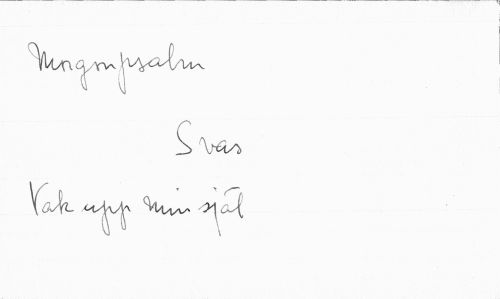 Morgonpsalm
Svas
Vak upp min själ